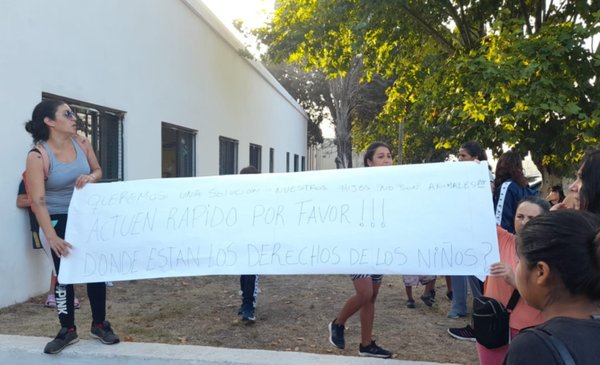 QUEREMOS UNA SOLUCIÓN - NUESTROS HIJOS ¡NO SON ANIMALES!!
ACTUEN RAPIDO POR FAVOR!!!
DONDE ESTAN LOS DERECHOS DE LOS NIÑOS?
PINK